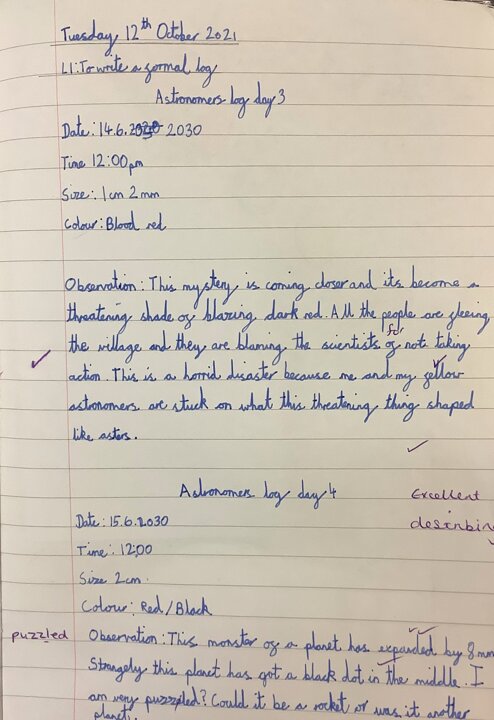 Tuesday 12th October 2021
LI: To write a formal log
Astronomers log day 3
Date: 14.6. 2030
Time 12:00pm
Size: 1cm 2mm
Colour: Blood red
Observation: This mystery is coming closer and its become a
threatening shade of blazing dark red. All the people are fleeing
for
the village and they are blaming the scientists of not taking
action. This is a horrid disaster because me and my fellow
astronomers are stuck on what this threatening thing shaped
like asters.
Astronomers log day 4
Excellent
Date: 15.6.2030
describin
Time: 12:00
Size 2cm.
Colour: Red/Black
puzzled
Observation: This monster of a planet has expanded by 8mm
Strangely this planet has got a black dot in the middle. I
am very puzzpled? Could it be a rocket or was it another
planet.